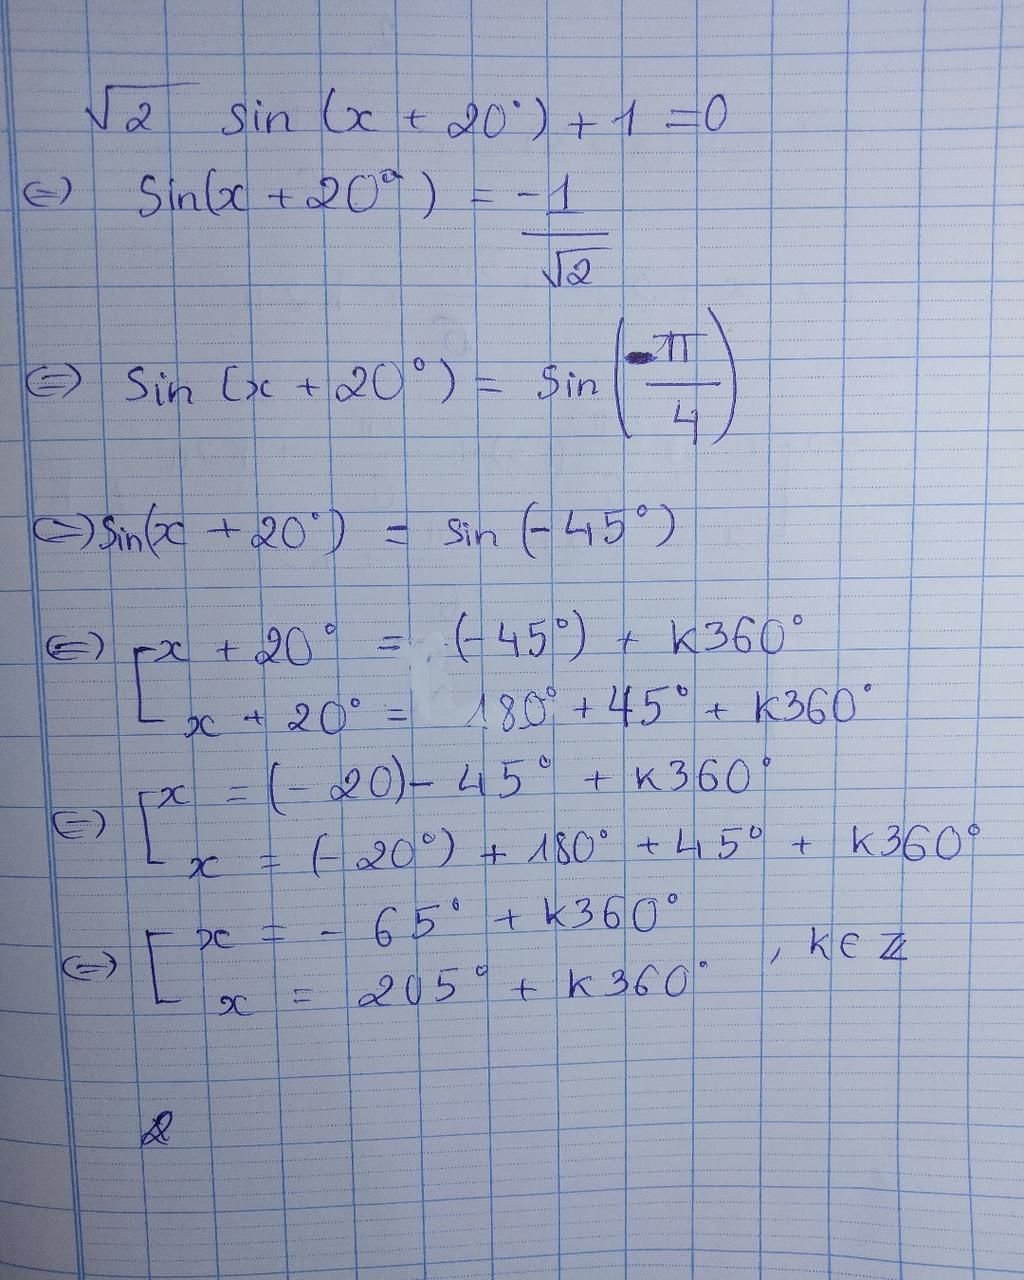 √2 sin (x + 20°) + 1 = 0
⇔ Sin(x + 20°) = -1/√2
⇔ Sin (x + 20°) = Sin (-π/4)
⇔ Sin(x + 20°) = sin (-45°)
⇔ [ x + 20° = (-45°) + K360°
x + 20° = 180° + 45° + K360°
⇔ [ x = (-20) - 45° + K360°
x = (-20°) + 180° + 45° + K360°
⇔ [ x = - 65° + K360°
x = 205° + K360° , K ∈ ℤ